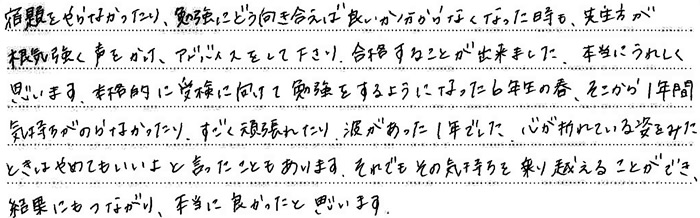 宿題をやらなかったり、勉強にどう向き合えば良いか分からなくなった時も、先生方が
根気強く声をかけ、アドバイスをして下さり、合格することが出来ました。本当にうれしく
思います。本格的に受検に向けて勉強をするようになった6年生の春、そこから1年間
気持ちがのらなかったり、すごく頑張れたり、波があった1年でした。心が折れている姿をみた
ときはやめてもいいよと言ったこともあります。それでもその気持ちを乗り越えることができ、
結果にもつながり、本当に良かったと思います。